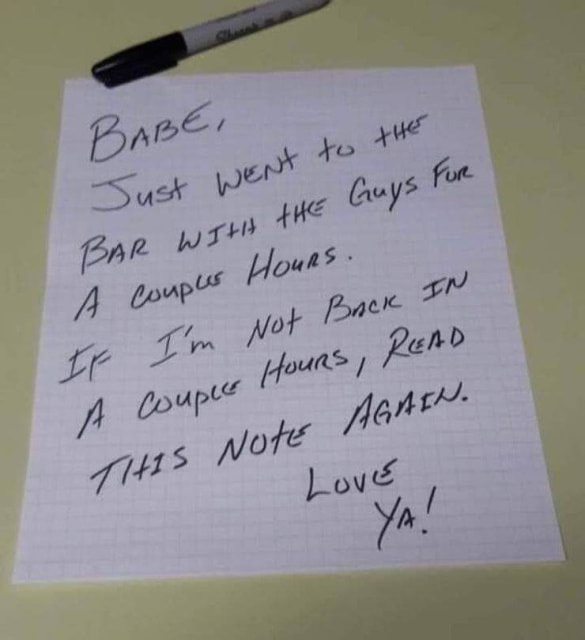 Sharpie
BABE,
Just WENt to tHE
BAR WItH tHE Guys FOR
A COUPLE HOURS.
IF I'm Not BACK IN
A COUPLE HOURS, READ
THIS NOtE AGAIN.
LOVE
YA!